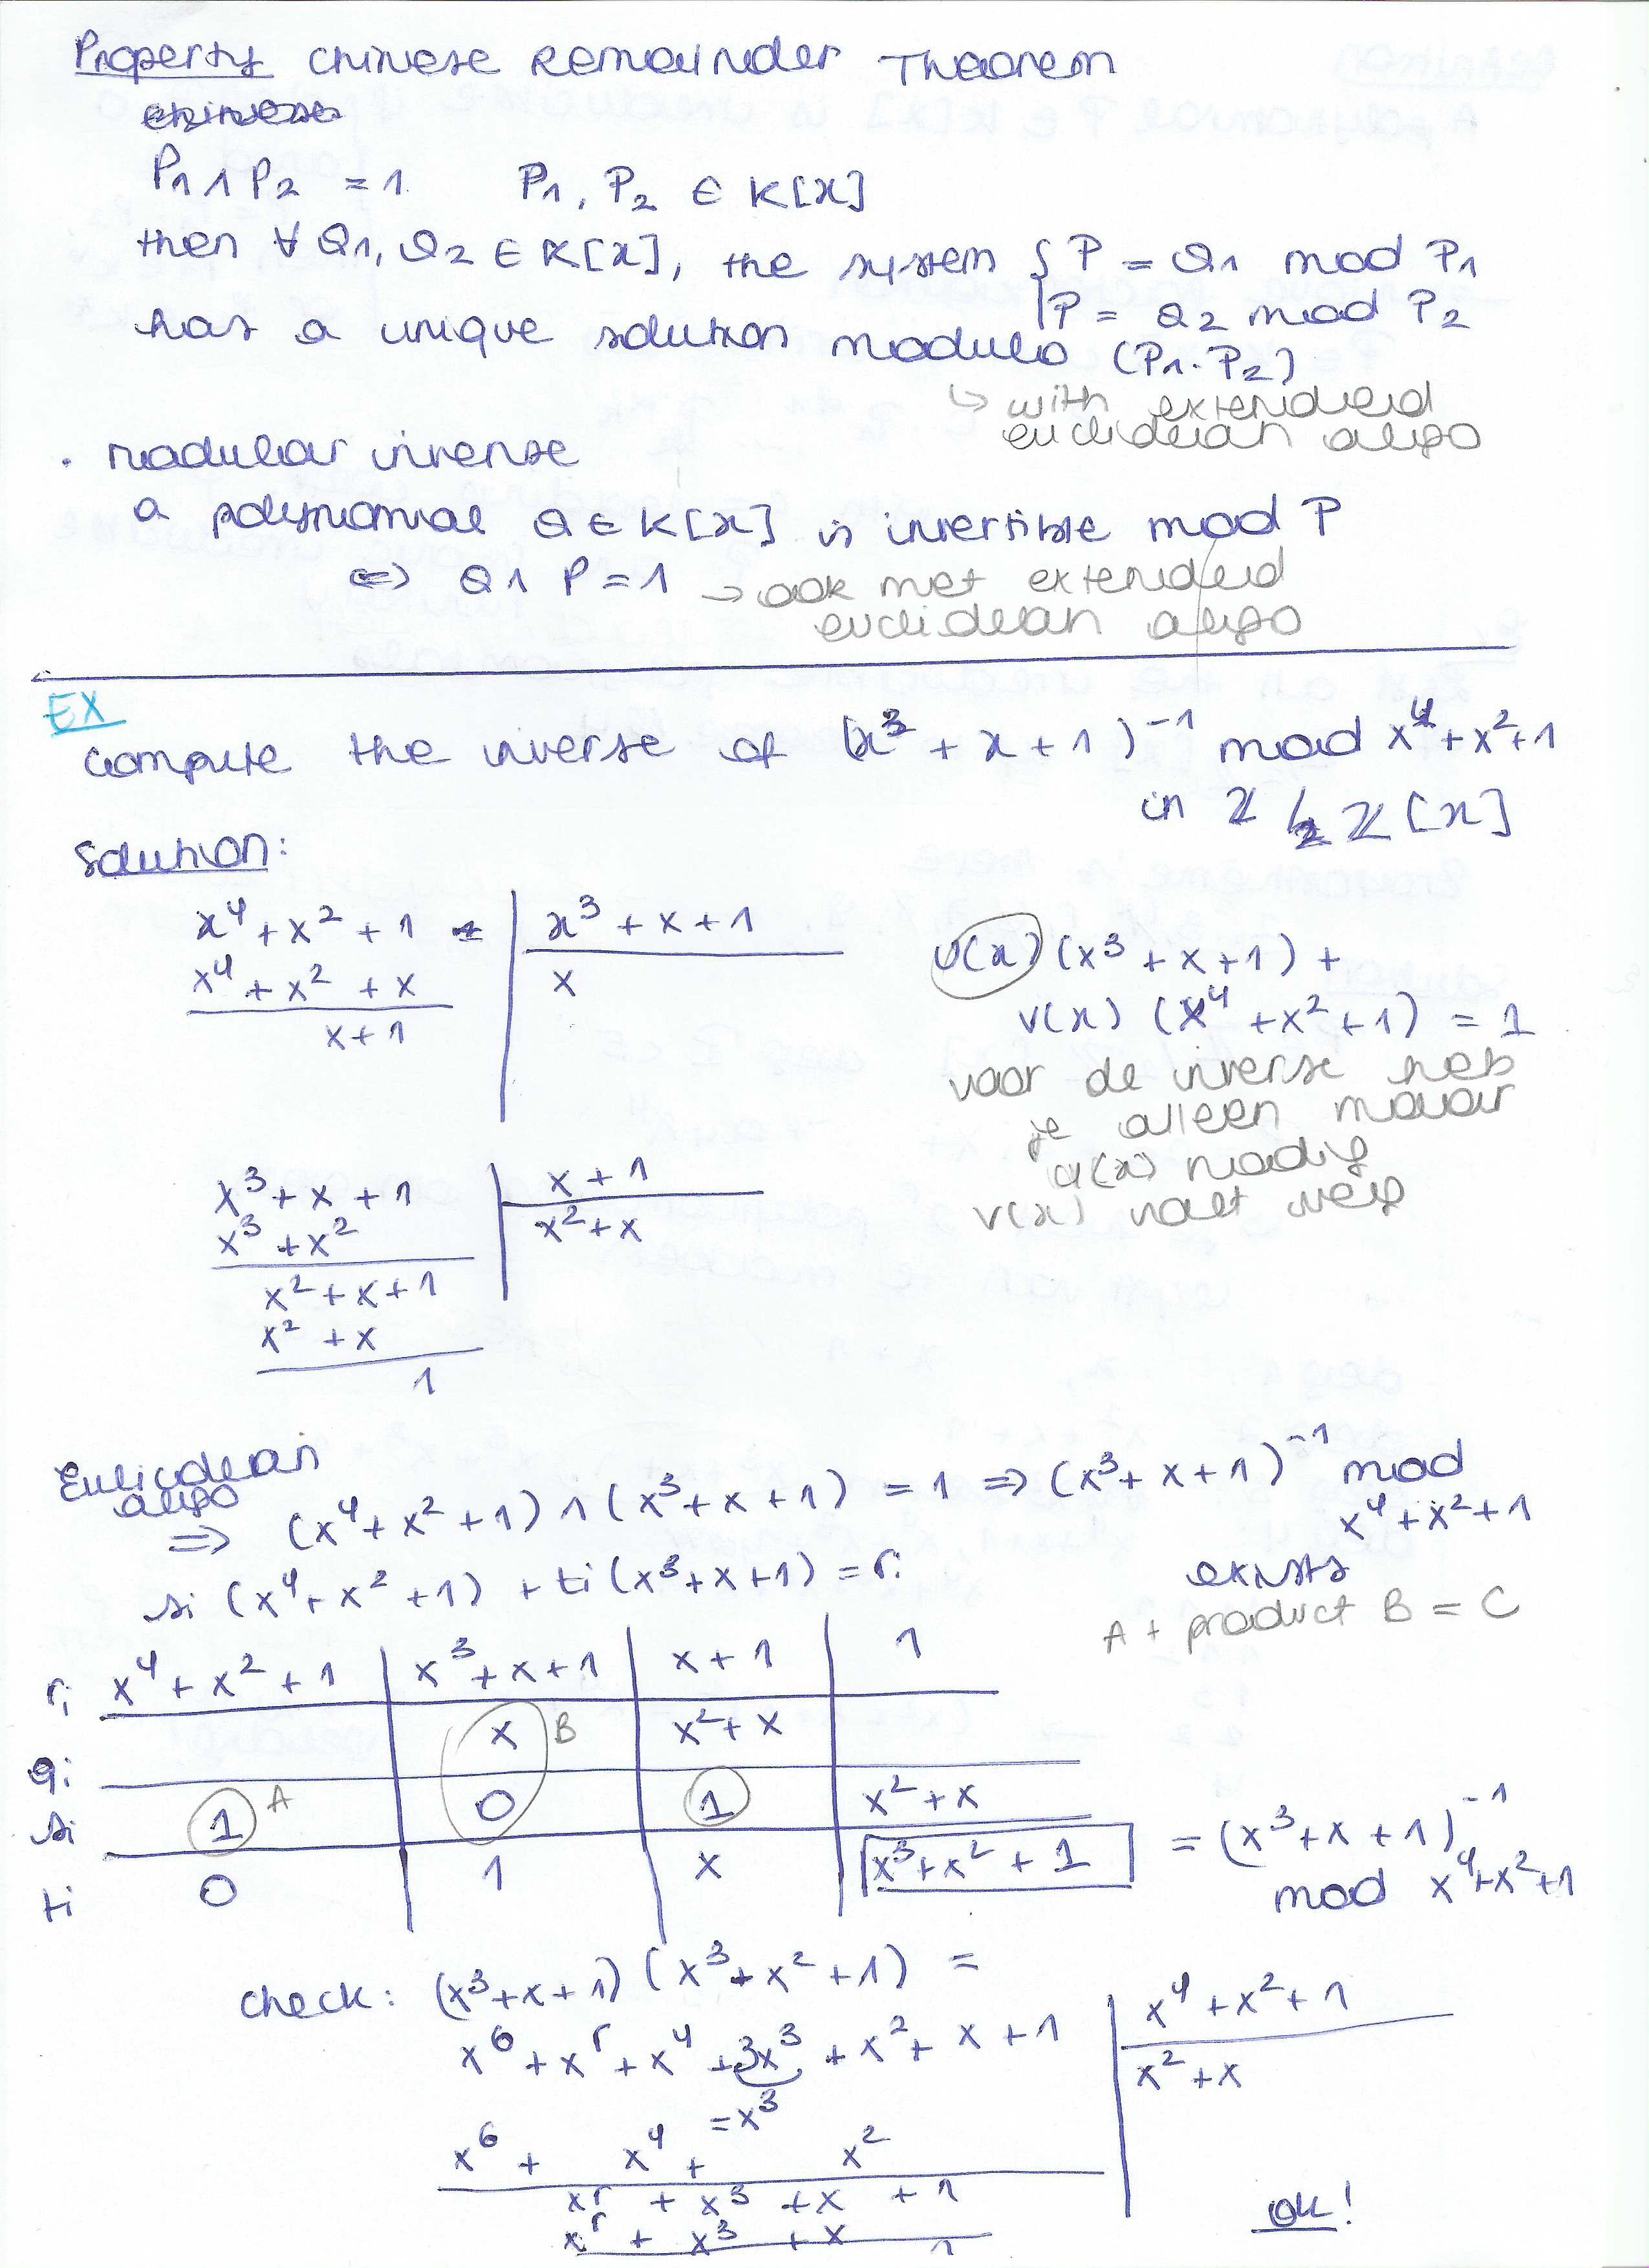 Property Chinese Remainder Theorem
chinese
P1 ∧ P2 = 1 P1, P2 ∈ K[x]
then ∀ Q1, Q2 ∈ K[x], the system { P = Q1 mod P1
P = Q2 mod P2
has a unique solution modulo (P1·P2)
↳ with extended
euclidean algo
· modular inverse
a polynomial Q ∈ K[x] is invertible mod P
⇔ Q ∧ P = 1 → ook met extended
euclidean algo
EX
compute the inverse of (x³ + x + 1)⁻¹ mod x⁴ + x² + 1
in Z/2Z [x]
Solution:
x⁴ + x² + 1 | x³ + x + 1
x⁴ + x² + x | x
x + 1
u(x) (x³ + x + 1) +
v(x) (x⁴ + x² + 1) = 1
voor de inverse heb
je alleen maar
u(x) nodig
v(x) valt weg
x³ + x + 1 | x + 1
x³ + x² | x² + x
x² + x + 1
x² + x
1
Eulicdean
algo
⇒ (x⁴ + x² + 1) ∧ (x³ + x + 1) = 1 ⇒ (x³ + x + 1)⁻¹ mod
x⁴ + x² + 1
exists
si (x⁴ + x² + 1) + ti (x³ + x + 1) = ri
A + product B = C
ri x⁴ + x² + 1 | x³ + x + 1 | x + 1 | 1
qi | x B | x² + x |
si 1 A | 0 | 1 | x² + x
ti 0 | 1 | x | x³ + x² + 1 = (x³ + x + 1)⁻¹
mod x⁴ + x² + 1
check: (x³ + x + 1) (x³ + x² + 1) =
x⁶ + x⁵ + x⁴ + 3x³ + x² + x + 1 | x⁴ + x² + 1
= x³ | x² + x
x⁶ + x⁴ + x²
x⁵ + x³ + x + 1
x⁵ + x³ + x
1
OK!